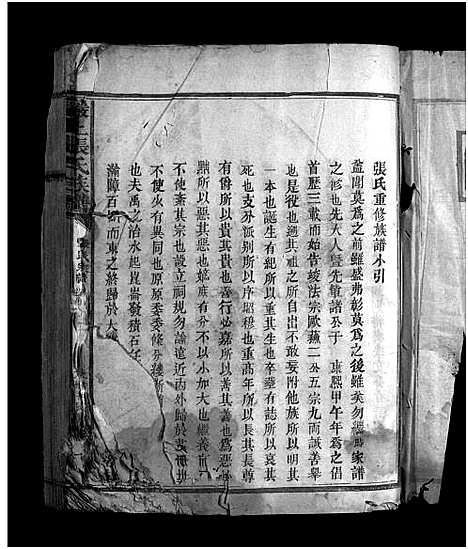 張氏重修族譜小引
蓋聞莫爲之前雖盛弗彰莫爲之後雖美勿繼時家譜
之修也先大人暨先敏諸公于康熙甲午年爲之倡
首歷三載而始告竣法宗歐蘇二公五宗九兩誠善舉
也是役也遡其祖之所自出不敢妄附他族所以明其
一本也誕生有紀所以重其生也卒塟有誌所以哀其
死也支分派別所以序昭穆也重高年所以長其長尊
有爵所以貴其貴也善行必嘉所以善其善也爲惡
黜所以惡其惡也嫡庶有分不以小加大也繼養
不使紊其宗也設立祠規勿論遠近內外歸於
不使或有異同也原原委委條分縷
也夫禹之治水起崑崙發積石
滿障百川而東之終歸於大
張氏族譜